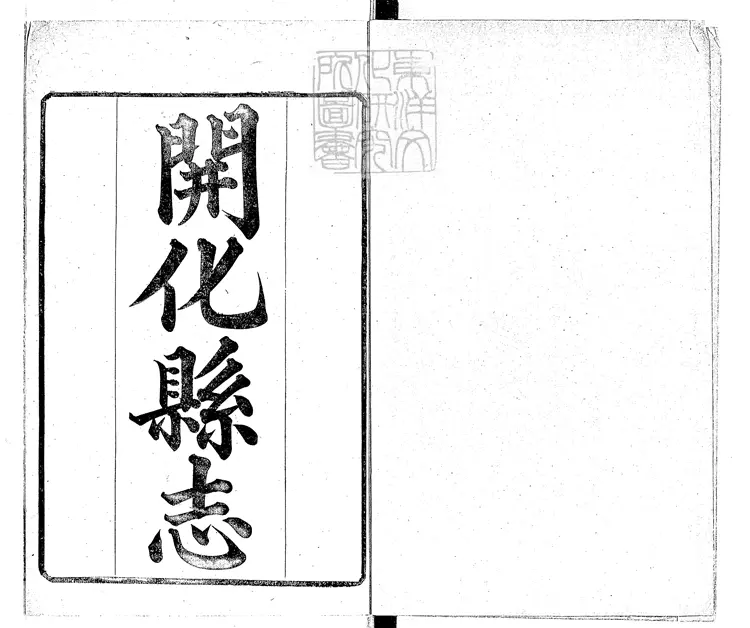 東洋文
化研究
所圖書
開化縣志